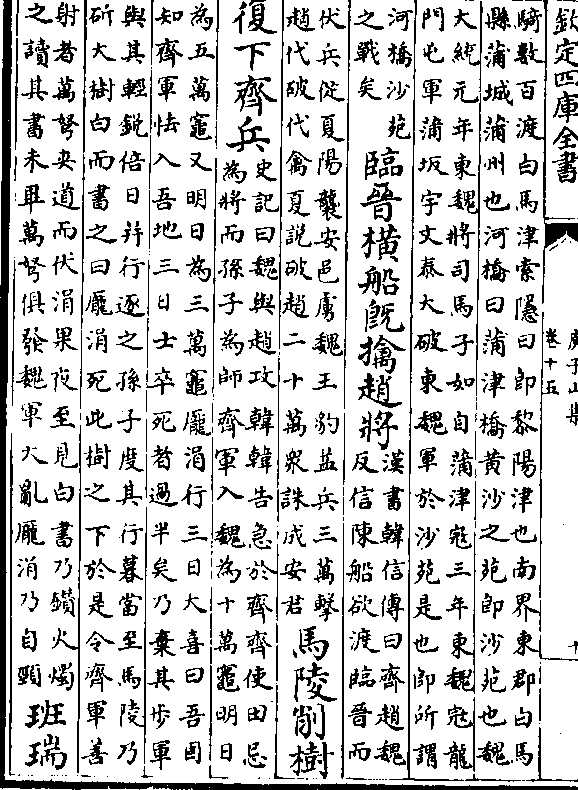 欽定四庫全書
卷十五
騎數百渡白馬津索隱曰即黎陽津也南界東郡白馬
縣蒲城蒲州也河橋曰蒲津橋黃沙之苑即沙苑也魏
大統元年東魏將司馬子如自蒲津宼三年東魏宼龍
門屯軍蒲坂宇文泰大破東魏軍於沙苑是也即所謂
河橋沙苑
之戰矣
臨晉橫船旣擒趙將
漢書韓信傳曰齊趙魏
反信陳船欲渡臨晉而
伏兵從夏陽襲安邑虜魏王豹益兵三萬擊
趙代破代禽夏說破趙二十萬衆誅成安君
馬陵削樹
復下齊兵
史記曰魏與趙攻韓韓告急於齊齊使田忌
為將而孫子為師齊軍入魏為十萬竈明日
為五萬竈又明日為三萬竈龐涓行三日大喜曰吾固
知齊軍怯入吾地三日士卒死者過半矣乃棄其步軍
與其輕銳倍日并行逐之孫子度其行暮當至馬陵乃
斫大樹白而書之曰龐涓死此樹之下於是令齊軍善
射者萬弩夾道而伏涓果夜至見白書乃鑽火燭
之讀其書未畢萬弩俱發魏軍大亂龐涓乃自頸
班瑞